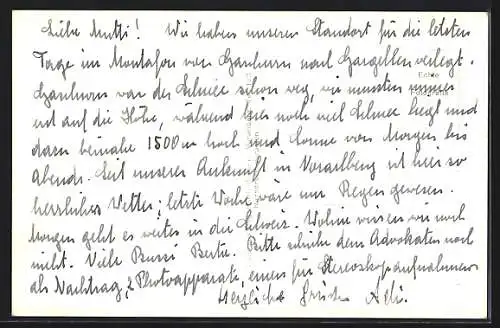 Liebe Mutti! Wir haben unseren Standort für die letzten
Tage im Montafon von Gaschurn nach Gargellen verlegt.
Gaschurn war der Schnee schon weg, wir mussten immer
erst auf die Höhe, während hier noch viel Schnee liegt und
dazu beinahe 1500 m hoch und Sonne von Morgen bis
abends. Seit unserer Ankunft in Vorarlberg ist hier so
herrliches Wetter; letzte Woche wäre nur Regen gewesen.
Morgen geht es weiter in die Schweiz. Wohin wissen wir noch
nicht. Viele Bussi Berta. Bitte schicke dem Advokaten noch
als Nachtrag, 2 Photoapparate, einen für Stereoskopaufnahmen
Herzliche Grüsse
Echte